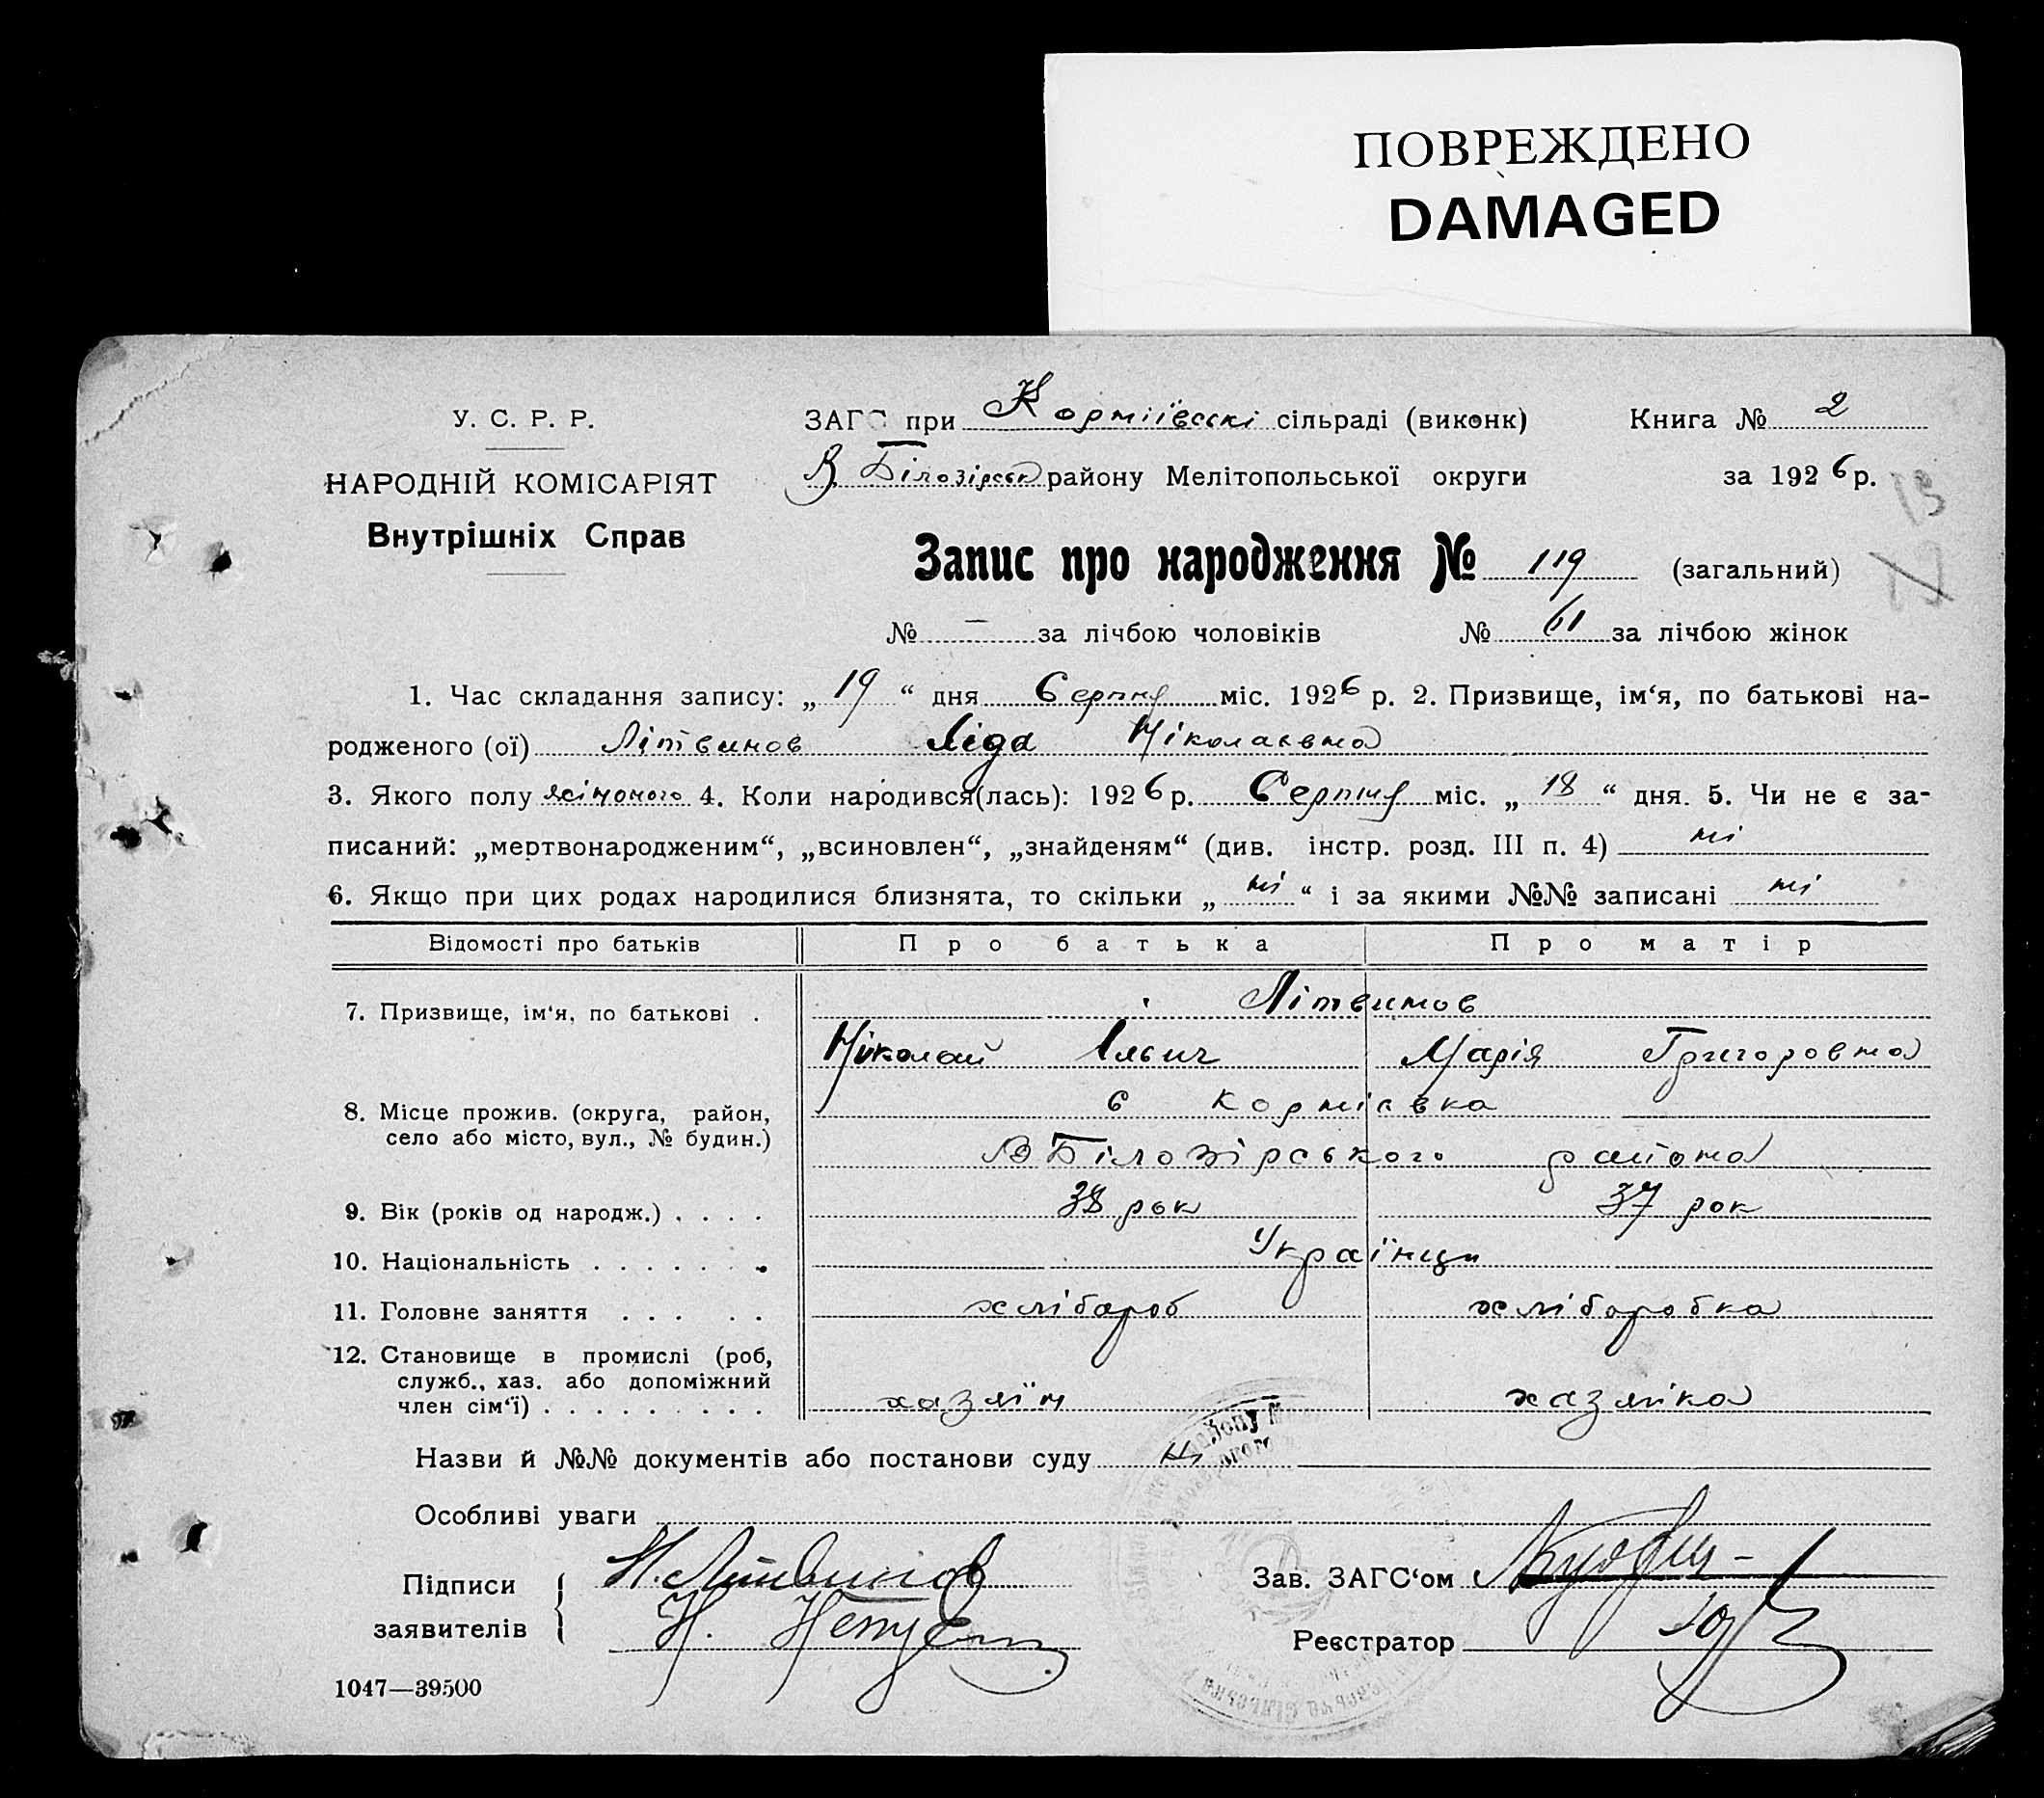 ПОВРЕЖДЕНО
DAMAGED
У. С. Р. Р.
НАРОДНІЙ КОМІСАРІЯТ
Внутрішніх Справ
ЗАГС при Корніївські сільраді (виконк)
Книга № 2
В. Білозірськ району Мелітопольської округи
за 1926 р.
Запис про народження № 119 (загальний)
№ — за лічбою чоловіків № 61 за лічбою жінок
1. Час складання запису: „ 19 “ дня Серпня міс. 1926 р. 2. Призвище, ім‘я, по батькові на-
родженого (ої) Літвинов Ліда Ніколаєвна
3. Якого полу жіночого 4. Коли народився(лась): 1926 р. Серпня міс. „ 18 “ дня. 5. Чи не є за-
писаний: „мертвонародженим“, „всиновлен“, „знайденям“ (див. інстр. розд. III п. 4) ні
6. Якщо при цих родах народилися близнята, то скільки „ ні “ і за якими №№ записані ні
Відомості про батьків Про батька Про матір
7. Призвище, ім‘я, по батькові . Літвинов
Ніколай Ільич Марія Григоровна
8. Місце прожив. (округа, район, с Корніевка
село або місто, вул., № будин.) В Білозірського района
9. Вік (років од народж.) . . . . 38 рок 37 рок
10. Національність . . . . . . . Українци
11. Головне заняття . . . . . хлібароб хлібаробка
12. Становище в промислі (роб,
служб., хаз. або допоміжний
член сім‘ї) . . . . . . . . . хазяїн хазяйка
Назви й №№ документів або постанови суду ні
Особливі уваги
Підписи Н. Литвинов
Зав. ЗАГС‘ом
заявителів Н.
Реєстратор
1047—39500